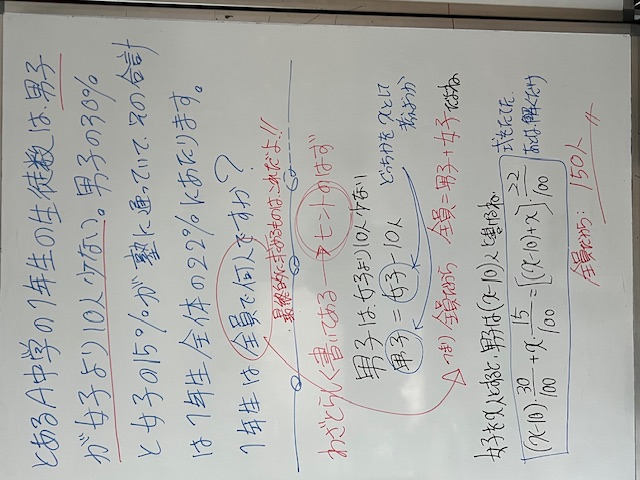 とあるA中学の1年生の生徒数は、男子
が女子より10人少ない。男子の30%
と女子の15%が塾に通っていて、その合計
は1年生全体の22%にあたります。
1年生は全員で何人ですか?
最終的に求めるものはこれだよ!!
わざとらしく書いてある → ヒントのはず
男子は女子より10人少ない
男子 = 女子 - 10人
どっちかをxとして
つまり全員だから 全員=男子+女子だよね
女子をx人とすると、男子は(x-10)人と書けるね。
式をたてた
あとは解くだけ
(x-10)・30/100 + x・15/100 = [(x-10)+x]・22/100
全員だから: 150人